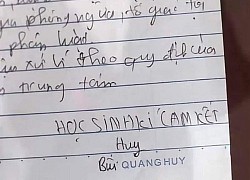 phòng ngừa, tố giác tội
phản hồi
xử lí theo quy định của
trung tâm
HỌC SINH KÍ CAM KẾT
Huy
Bùi QUANG HUY